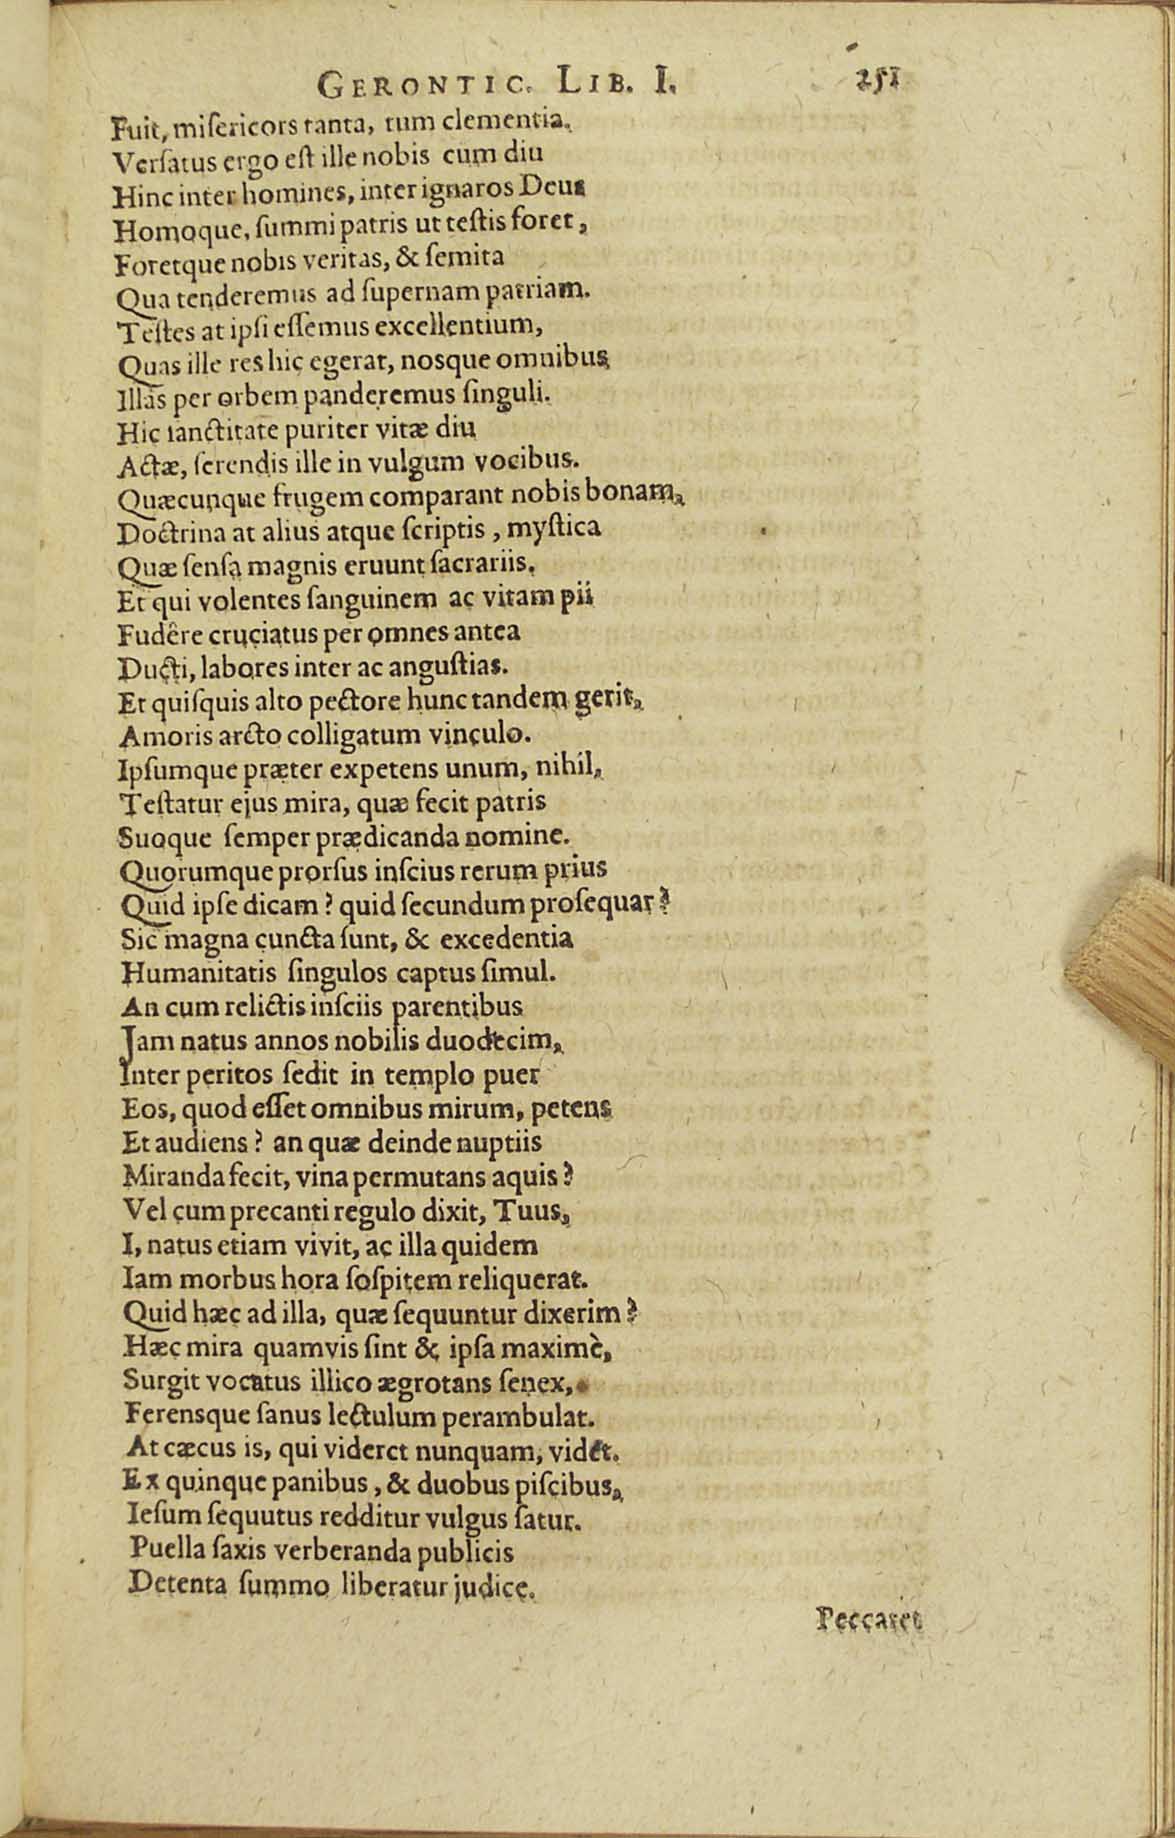 GERONTIC. LIB. I. 251
Fuit, miſericors tanta, tum clementia.
Verſatus ergo eſt ille nobis cum diu
Hinc inter homines, inter ignaros Deus
Homoque, ſummi patris ut teſtis foret,
Foretque nobis veritas, & ſemita
Qua tenderemus ad ſupernam patriam.
Teſtes at ipſi eſſemus excellentium,
Quas ille res hic egerat, nosque omnibus
Illas per orbem panderemus ſinguli.
Hic ſanctitate puriter vitæ diu
Actæ, ſerendis ille in vulgum vocibus.
Quæcunque frugem comparant nobis bonam,
Doctrina at alius atque ſcriptis, myſtica
Quæ ſenſa magnis eruunt ſacrariis.
Et qui volentes ſanguinem ac vitam pii
Fudêre cruciatus per omnes antea
Ducti, labores inter ac anguſtias.
Et quiſquis alto pectore hunc tandem gerit,
Amoris arcto colligatum vinculo.
Ipſumque præter expetens unum, nihil,
Teſtatur ejus mira, quæ fecit patris
Suoque ſemper prædicanda nomine.
Quorumque prorſus inſcius rerum prius
Quid ipſe dicam? quid ſecundum proſequar?
Sic magna cuncta ſunt, & excedentia
Humanitatis ſingulos captus ſimul.
An cum relictis inſciis parentibus
Jam natus annos nobilis duodecim,
Inter peritos ſedit in templo puer
Eos, quod eſſet omnibus mirum, petens
Et audiens? an quæ deinde nuptiis
Miranda fecit, vina permutans aquis?
Vel cum precanti regulo dixit, Tuus,
I, natus etiam vivit, ac illa quidem
Iam morbus hora ſoſpitem reliquerat.
Quid hæc ad illa, quæ ſequuntur dixerim?
Hæc mira quamvis ſint & ipſa maximè,
Surgit vocatus illico ægrotans ſenex,
Ferensque ſanus lectulum perambulat.
At cæcus is, qui videret nunquam, videt.
Ex quinque panibus, & duobus piſcibus,
Ieſum ſequutus redditur vulgus ſatur.
Puella ſaxis verberanda publicis
Detenta ſummo liberatur judice.
Peccaret